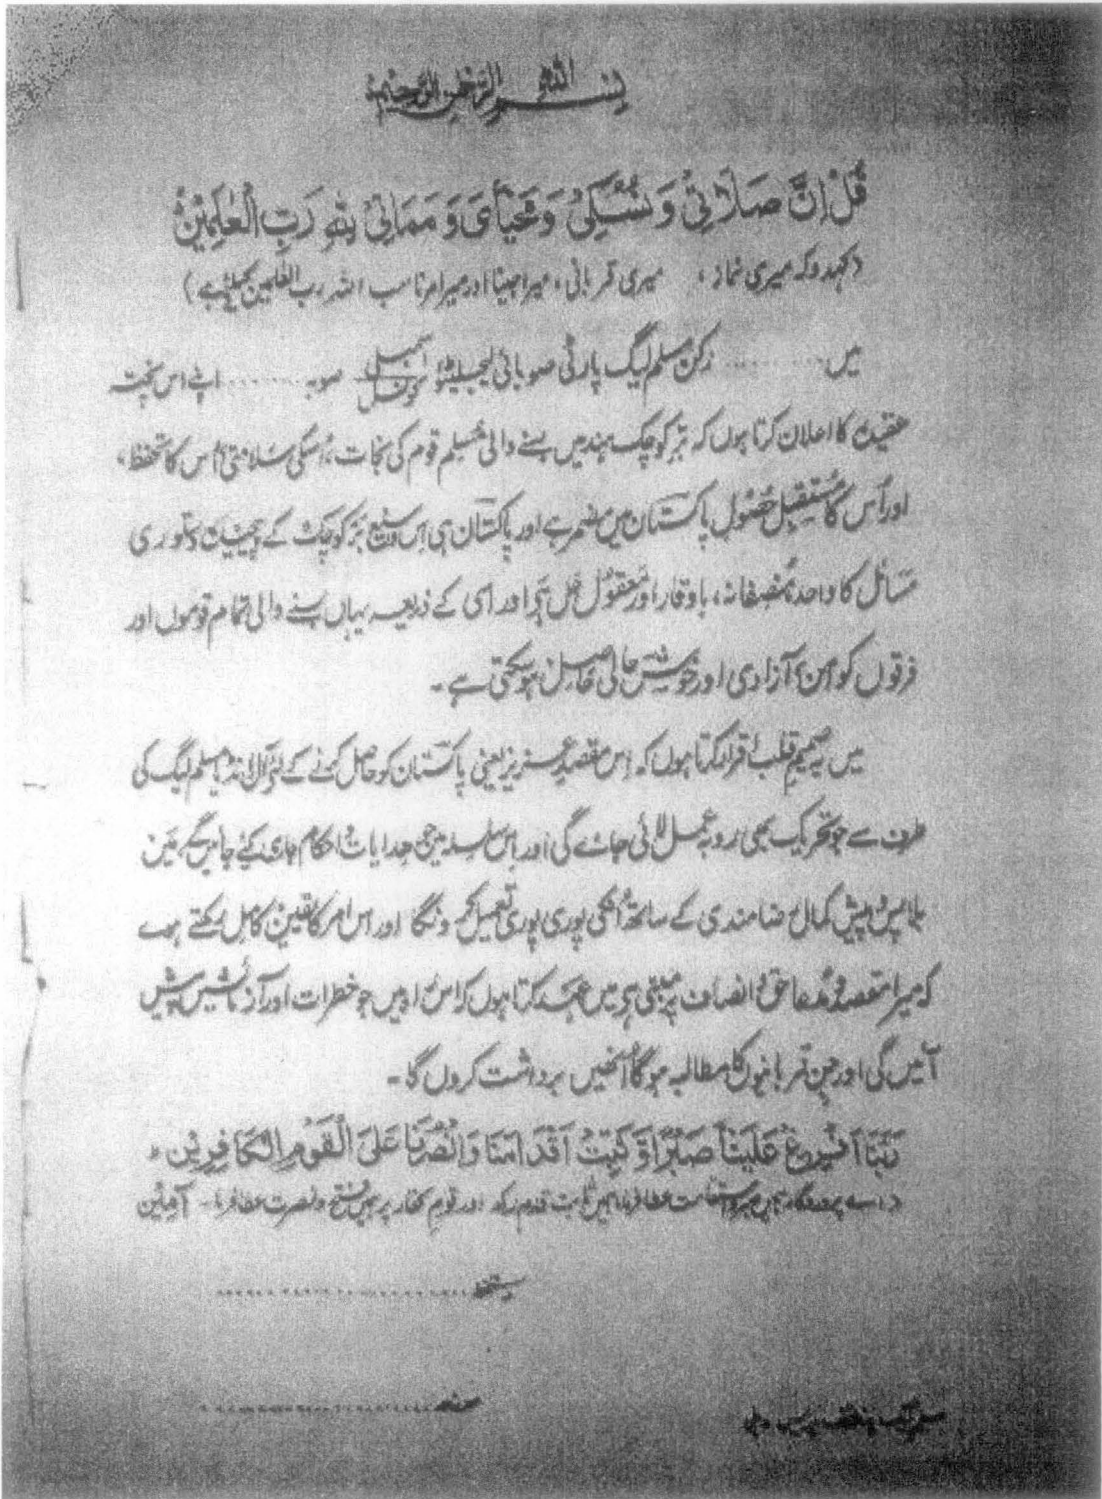 بِسْمِ اللهِ الرَّحْمٰنِ الرَّحِيْمِ
قُلْ اِنَّ صَلَاتِیْ وَ نُسُکِیْ وَ مَحْیَایَ وَ مَمَاتِیْ لِلّٰهِ رَبِّ الْعٰلَمِیْنَ
(کہدو کہ میری نماز، میری قربانی، میرا جینا اور میرا مرنا سب اللہ رب العٰلمین کیلئے ہے)
میں............ رکن مسلم لیگ پارٹی صوبائی لیجسلیٹو اسمبلی کونسل صوبہ ......... اپنے اس پختہ
عقیدہ کا اعلان کرتا ہوں کہ برّ کوچک ہند میں بسنے والی مُسلم قوم کی نجات، اُسکی سلامتی اُس کا تحفظ،
اور اُس کا مُستقبل حُصُول پاکستان میں مضمر ہے اور پاکستان ہی اِس وسیع بَرّ کوچک کے پیچیدہ دستوری
مَسائل کا واحد مُنصفانہ، باوقار، اور مَعقُول حَل ہَی اور اسی کے ذریعہ یہاں بسنے والی تمام قوموں اور
فرقوں کو امن، آزادی اور خُوش حالی حَاصِل ہو سکتی ہے۔
میں بہ صمیمِ قلب اقرار کرتا ہوں کہ اِس مقصدِ عزیز یعنی پاکستان کو حاصل کرنے کے لئے آل انڈیا مسلم لیگ کی
طرف سے جو تحریک بھی رو بہ عمل لائی جائے گی اور اِس سلسلہ میں جو ھدایات و احکام جاری کئے جائیں گے، مَیں
بلا پس و پیش کمال رضامندی کے ساتھ اُنکی پوری پوری تعمیل کرونگا اور اس امر کا یقین کامل رکھتے ہوئے
کہ میرا مقصد و مُدعا حق و انصاف پر مبنی ہَی میں عہد کرتا ہوں کہ اس راہ میں جو خطرات اور آزمائشیں پیش
آئیں گی اور جن قربانیوں کا مطالبہ ہوگا اُنھیں برداشت کروں گا۔
رَبَّنَا اَفْرِغْ عَلَیْنَا صَبْرًا وَّ ثَبِّتْ اَقْدَامَنَا وَانْصُرْنَا عَلَی الْقَوْمِ الْکَافِرِیْن
(اے پروردگار ہمیں صبر و استقامت عطا فرما، ہمیں ثابت قدم رکھ اور قومِ کفار پر ہمیں فتح و نصرت عطا فرما۔ آمین
دستخط ........................